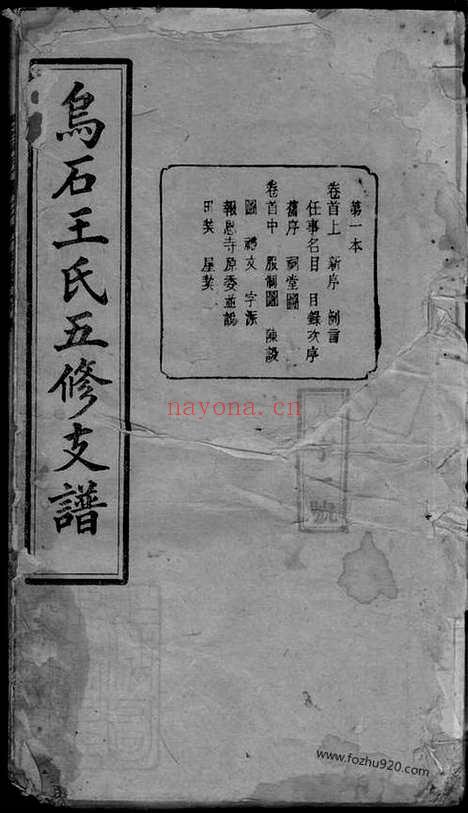 烏石王氏五修支譜
第一本
卷首上 新序 例言
任事名目 目錄次序
舊序 祠堂圖
卷首中 服制圖 陳設
圖 禮文 字派
報恩寺原委並說
田契 屋契
號
nayona.cn
www.fozhu920.com